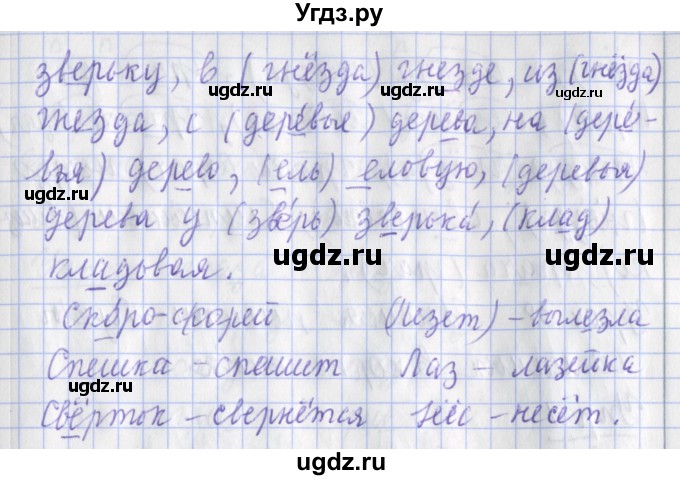 Угдз.ру
зверьку, в (гнёзда) гнезде, из (гнёзда)
гнезда, с (дере́вья) дерева, на (дере́-
вья) дерево, (ель) еловую, (деревья)
дерева у (зве́рь) зверька́, (клад)
кладовая.
Скоро-скорей (Лезет) - вылезла
Спешка - спешит Лаз - лазейка
Свёрток - свернётся Нёс - несёт.
ugdz.ru
ugdz.ru
ugdz.ru
ugdz.ru
ugdz.ru
ugdz.ru
ugdz.ru
ugdz.ru
ugdz.ru
ugdz.ru
ugdz.ru